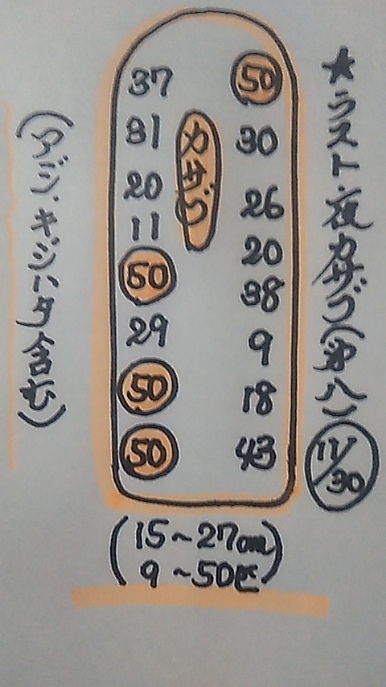 ★ラスト・夜カサゴ(第八)
11/30
50
30
26
20
38
9
18
43
カサゴ
37
31
20
11
50
29
50
50
(アジ、キジハタ含む)
(15~27cm
9~50匹)